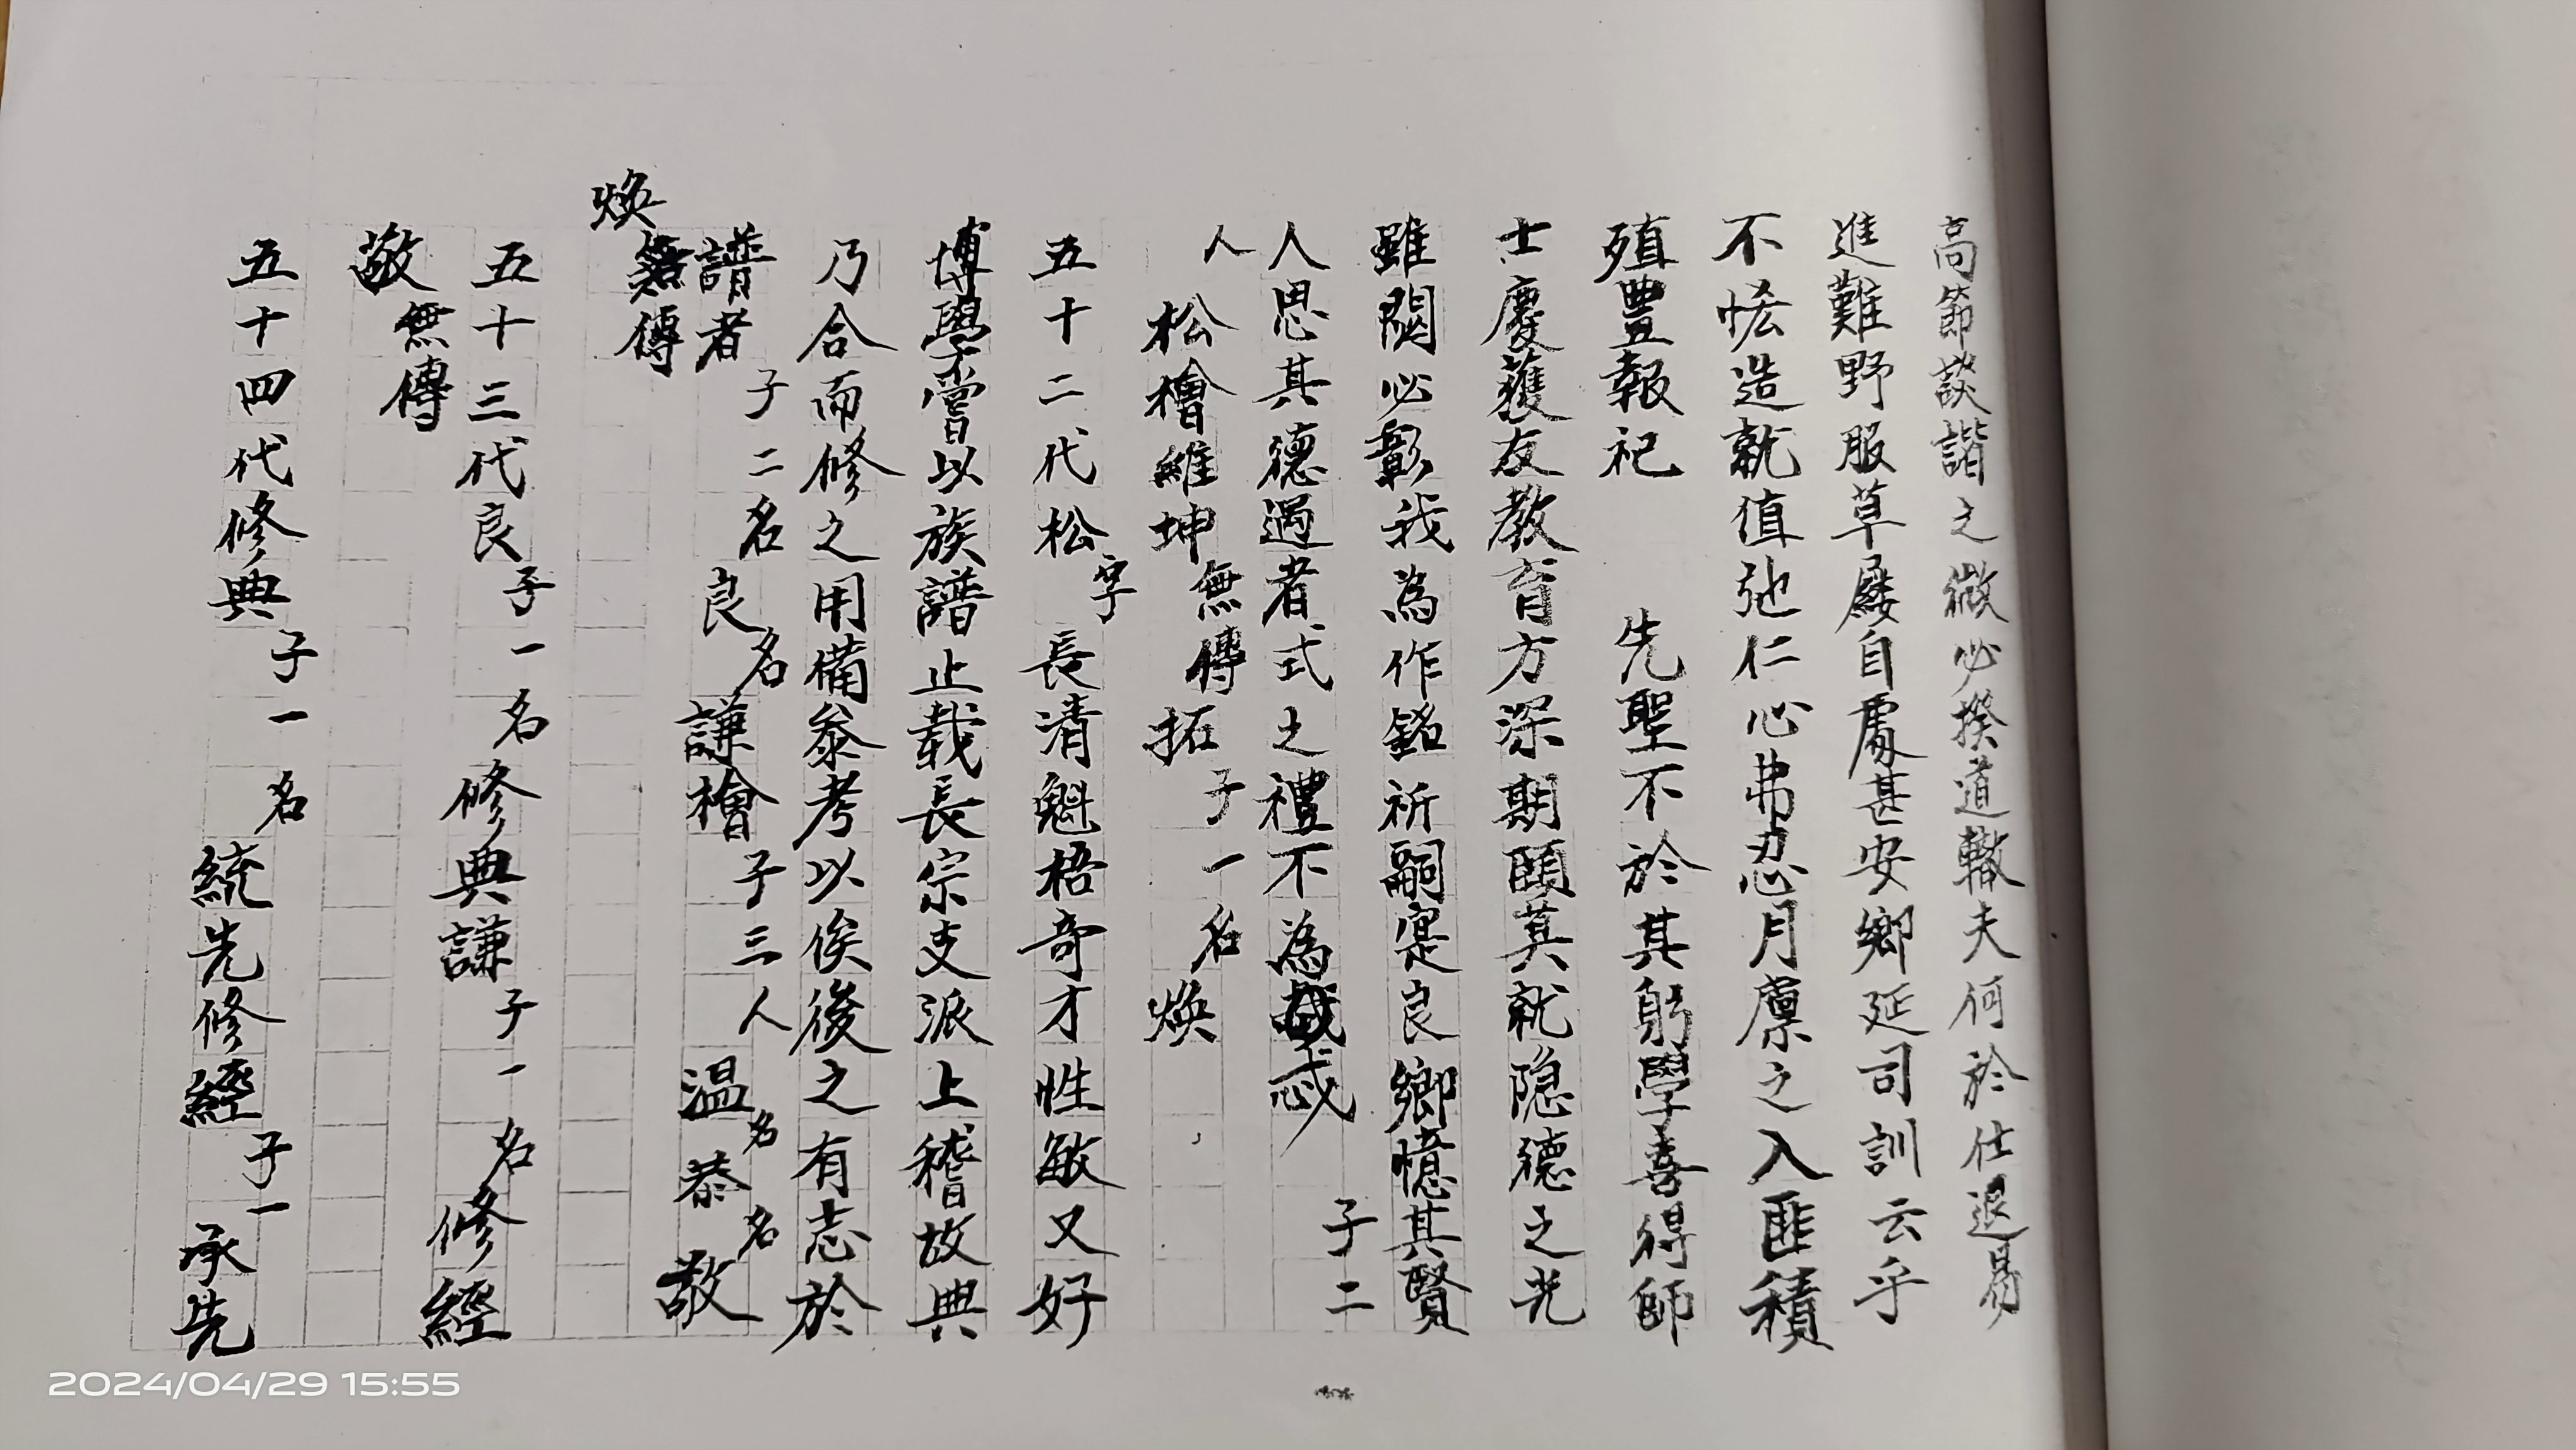 高節談諧之微必揆道轍夫何於仕退易
進難野服草屨自處甚安鄉延司訓云乎
不恡造就值弛仁心弗忍月廪之入匪積
殖豊報祀 先聖不於其躬學喜得師
士慶獲友教育方深期頤莫就隐德之光
雖閟必彰我為作銘祈嗣寔良鄉憶其賢
人思其德過者式之禮不為忒 子二
人 松檜維坤無傳拓子一名煥
五十二代松字長清魁梧奇才性敏又好
博學嘗以族譜止載長宗支派上稽故典
乃合而修之用備叅考以俟後之有志於
譜者子二名良名謙檜子三人温名恭名敬
煥無傳
五十三代良子一名修典謙子一名修經
敬無傳
五十四代修典子一名統先修經子一承先
2024/04/29 15:55